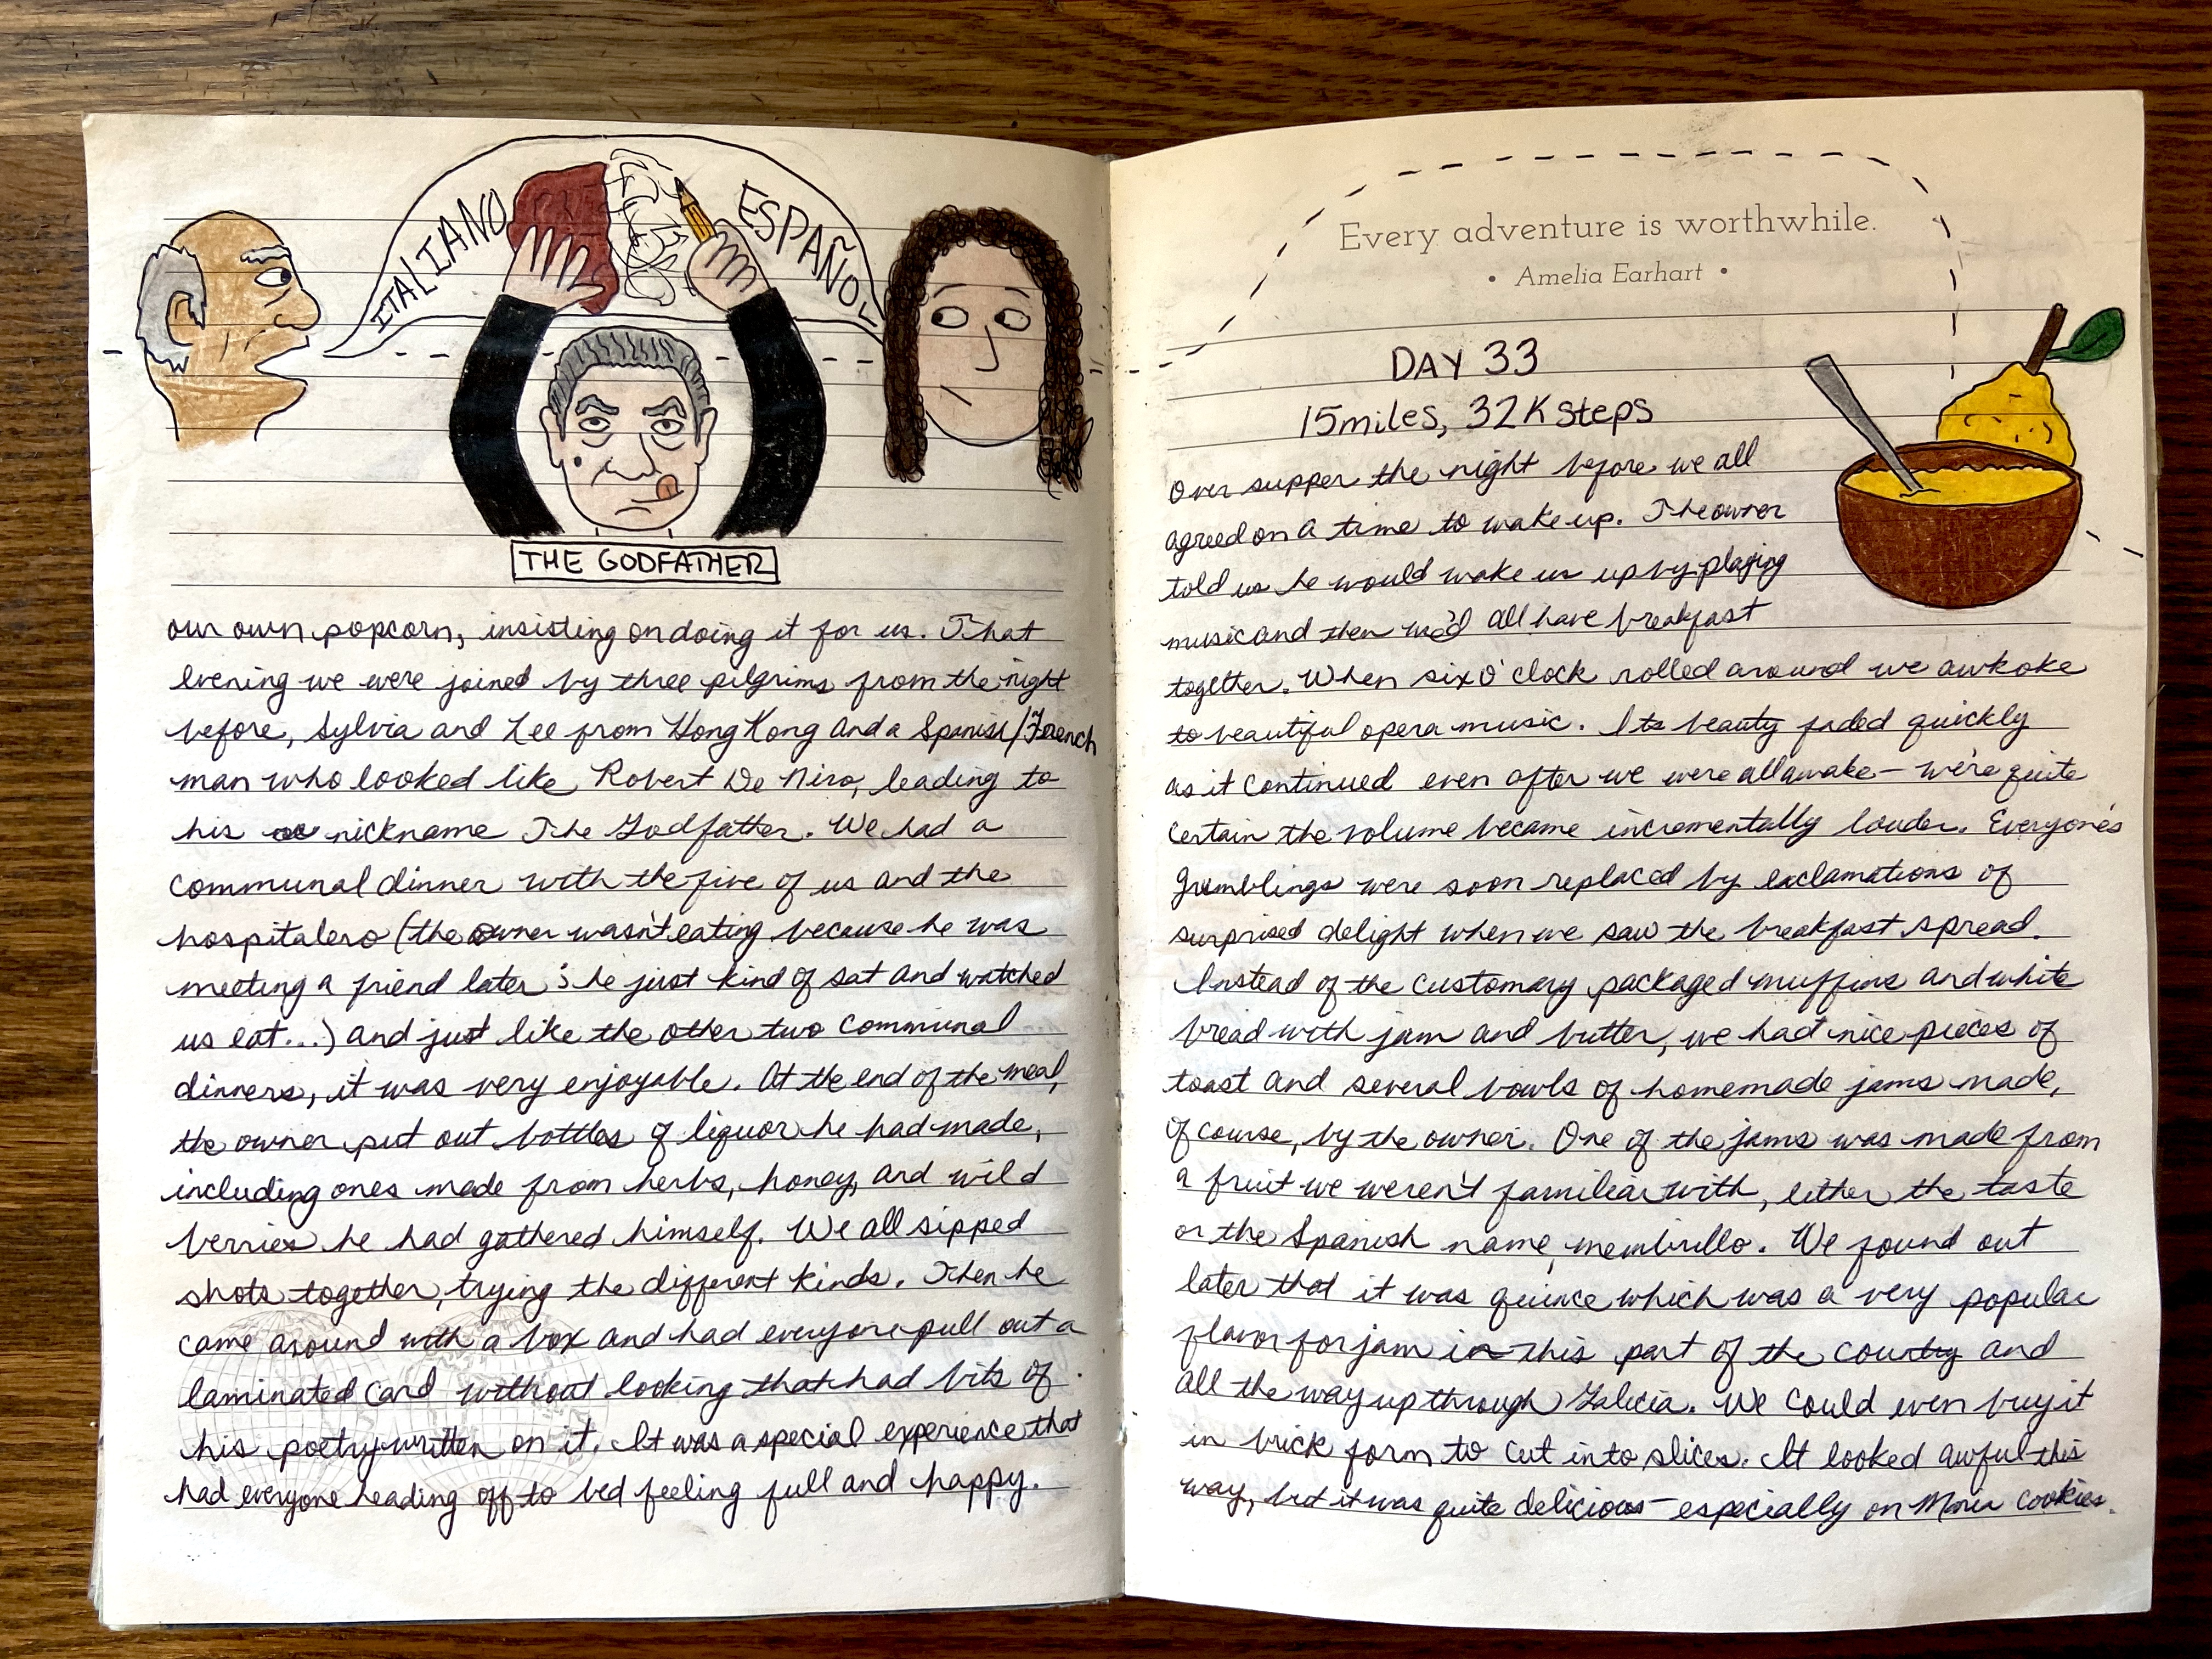 ITALIANO
ESPAÑOL
THE GODFATHER
our own popcorn, insisting on doing it for us. That
evening we were joined by three pilgrims from the night
before, Sylvia and Lee from Hong Kong and a Spanish/French
man who looked like Robert De Niro, leading to
his nickname The Godfather. We had a
communal dinner with the five of us and the
hospitalero (the owner wasn't eating because he was
meeting a friend later; he just kind of sat and watched
us eat...) and just like the other two communal
dinners, it was very enjoyable. At the end of the meal,
the owner put out bottles of liquor he had made,
including ones made from herbs, honey, and wild
berries he had gathered himself. We all sipped
shots together, trying the different kinds. Then he
came around with a box and had everyone pull out a
laminated card without looking that had bits of
his poetry written on it. It was a special experience that
had everyone heading off to bed feeling full and happy.
Every adventure is worthwhile.
• Amelia Earhart •
DAY 33
15 miles, 32K steps
Over supper the night before we all
agreed on a time to wake up. The owner
told us he would wake us up by playing
music and then we'd all have breakfast
together. When six o'clock rolled around we awkoke
to beautiful opera music. Its beauty faded quickly
as it continued even after we were all awake – we're quite
certain the volume became incrementally louder. Everyone's
grumblings were soon replaced by exclamations of
surprised delight when we saw the breakfast spread.
Instead of the customary packaged muffins and white
bread with jam and butter, we had nice pieces of
toast and several bowls of homemade jams made,
of course, by the owner. One of the jams was made from
a fruit we weren't familiar with, either the taste
or the Spanish name, membrillo. We found out
later that it was quince which was a very popular
flavor for jam in this part of the country and
all the way up through Galicia. We could even buy it
in brick form to cut into slices. It looked awful this
way, but it was quite delicious – especially on Maria cookies.